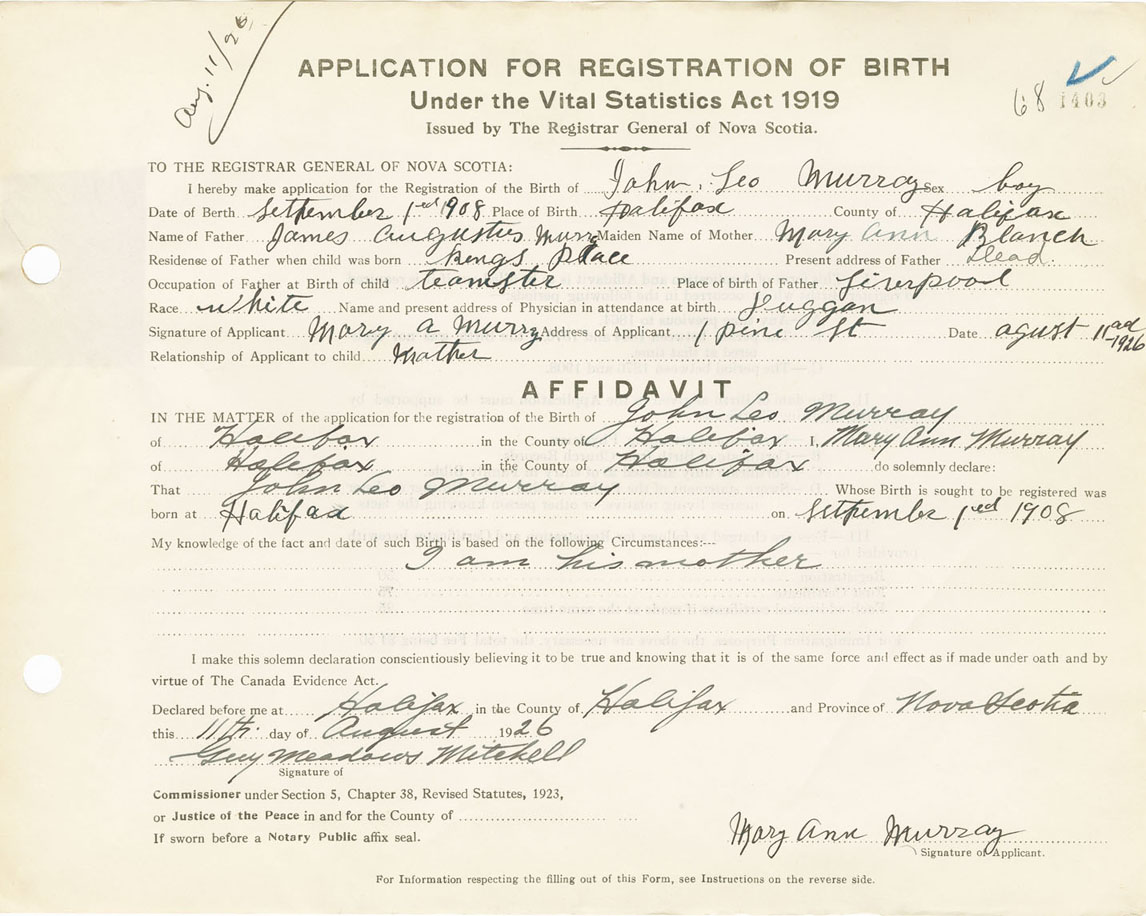 Aug. 11/26
APPLICATION FOR REGISTRATION OF BIRTH
Under the Vital Statistics Act 1919
68 1403
Issued by The Registrar General of Nova Scotia.
TO THE REGISTRAR GENERAL OF NOVA SCOTIA:
I hereby make application for the Registration of the Birth of John Leo Murray Sex boy
Date of Berth September 1ed 1908 Place of Birth Halifax County of Halifax
Name of Father James Augustus Murry Maiden Name of Mother Mary Ann Blanch
Residense of Father when child was born Kings Place Present address of Father Dead.
Occupation of Father at Birth of child teamster Place of birth of Father Liverpool
Race White Name and present address of Physician in attendance at birth Duggan
Signature of Applicant Mary A Murry Address of Applicant 1 pine St Date agust 11 1926
Relationship of Applicant to child Mother
AFFIDAVIT
IN THE MATTER of the application for the registration of the Birth of John Leo Murray
of Halifax in the County of Halifax I, Mary Ann Murray
of Halifax in the County of Halifax do solemnly declare:
That John Leo Murray Whose Birth is sought to be registered was
born at Halifax on September 1ed 1908
My knowledge of the fact and date of such Birth is based on the following Circumstances:---
I am his mother
I make this solemn declaration conscientiously believing it to be true and knowing that it is of the same force and effect as if made under oath and by
virtue of The Canada Evidence Act.
Declared before me at Halifax in the County of Halifax and Province of Nova Scotia
this 11th. day of August 1926
Guy Meadows Mitchell
Signature of
Commissioner under Section 5, Chapter 38, Revised Statutes, 1923,
or Justice of the Peace in and for the County of
If sworn before a Notary Public affix seal.
Mary Ann Murray
Signature of Applicant.
For Information respecting the filling out of this Form, see Instructions on the reverse side.